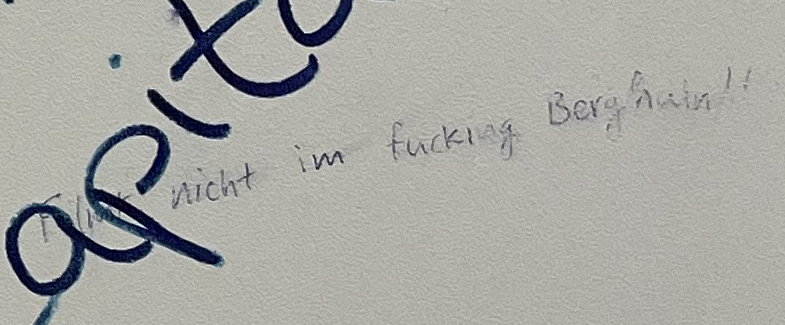 apita
Filmt nicht im fucking Berghain!!